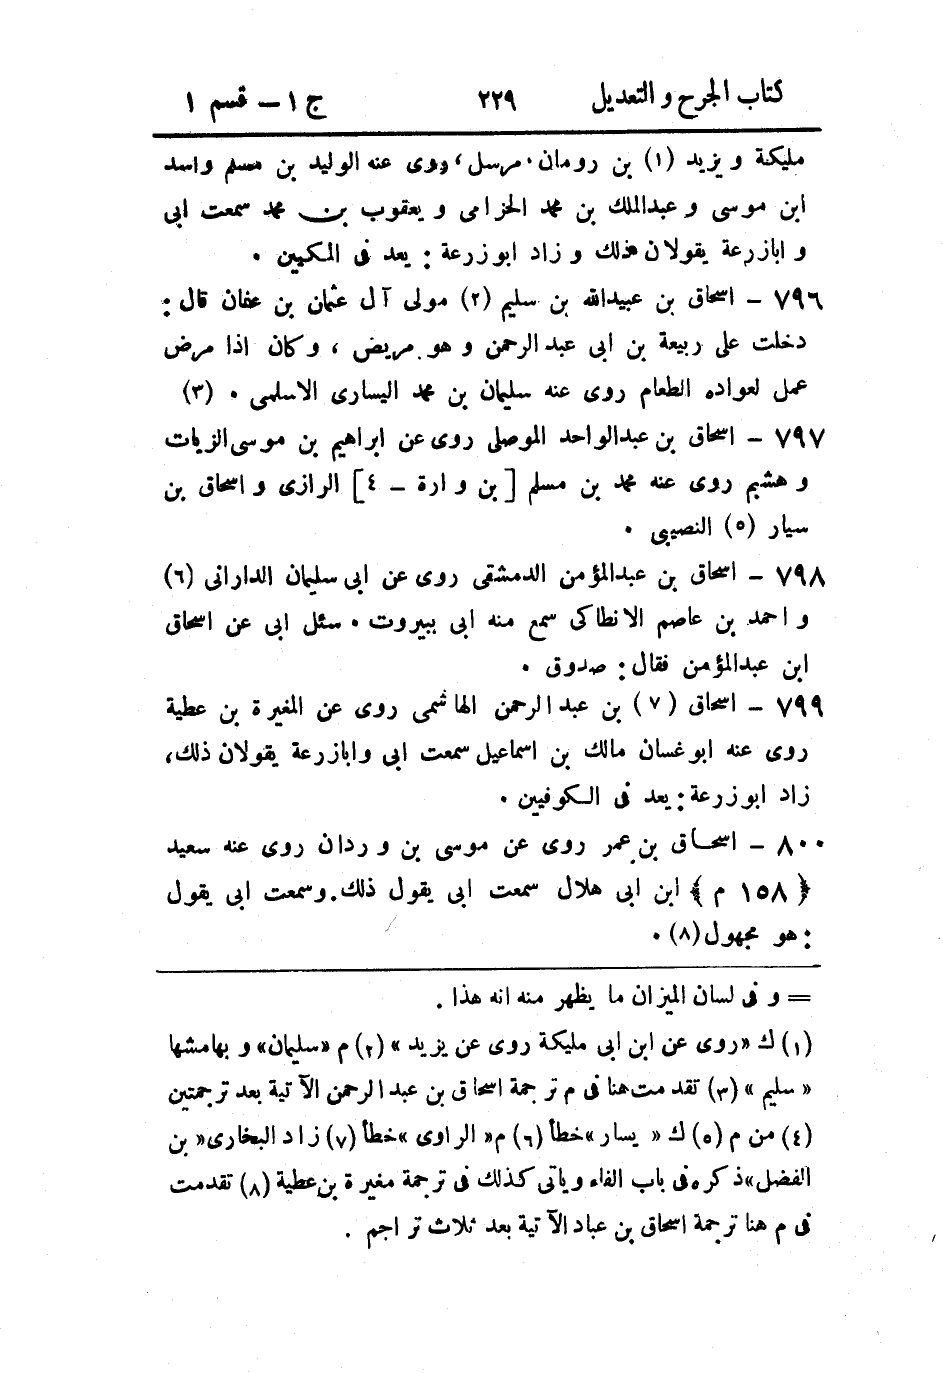 كتاب الجرح و التعديل ٢٢٩ ج ١ – قسم ١
مليكة و يزيد (١) بن رومان، مرسل، روى عنه الوليد بن مسلم واسد
ابن موسى و عبدالملك بن محمد الحزامى و يعقوب بن محمد سمعت ابى
و ابازرعة يقولان ذلك و زاد ابو زرعة: يعد فى المكيين .
٧٩٦ – اسحاق بن عبيدالله بن سليم (٢) مولى آل عثمان بن عفان قال:
دخلت على ربيعة بن ابى عبد الرحمن و هو مريض ، وكان اذا مرض
عمل لعواده الطعام روى عنه سليمان بن محمد اليسارى الاسلمى . (٣)
٧٩٧ – اسحاق بن عبدالواحد الموصلى روى عن ابراهيم بن موسى الزيات
و هشيم روى عنه محمد بن مسلم [ بن و ارة – ٤] الرازى و اسحاق بن
سيار (٥) النصيبى .
٧٩٨ – اسحاق بن عبدالمؤمن الدمشقى روى عن ابى سليمان الدارانى (٦)
و احمد بن عاصم الانطاكى سمع منه ابى ببيروت . سئل ابى عن اسحاق
ابن عبدالمؤمن فقال: صدوق .
٧٩٩ – اسحاق (٧) بن عبد الرحمن الهاشمى روى عن المغيرة بن عطية
روى عنه ابو غسان مالك بن اسماعيل سمعت ابى وابازرعة يقولان ذلك،
زاد ابو زرعة: يعد فى الكوفيين .
٨٠٠ – اسحاق بن عمر روى عن موسى بن و ردان روى عنه سعيد
﴿ ١٥٨ م ﴾ ابن ابى هلال سمعت ابى يقول ذلك. وسمعت ابى يقول
: هو مجهول (٨) .
= و فى لسان الميزان ما يظهر منه انه هذا .
(١) ك «روى عن ابن ابى مليكة روى عن يزيد » (٢) م «سليمان» و بهامشها
« سليم » (٣) تقدمت هنا فى م ترجمة اسحاق بن عبد الرحمن الآتية بعد ترجمتين
(٤) من م (٥) ك « يسار » خطأ (٦) م« الراوى » خطأ (٧) زاد البخارى« بن
الفضل» ذكره فى باب الفاء و ياتى كذلك فى ترجمة مغيرة بن عطية (٨) تقدمت
فى م هنا ترجمة اسحاق بن عباد الآتية بعد ثلاث تراجم .